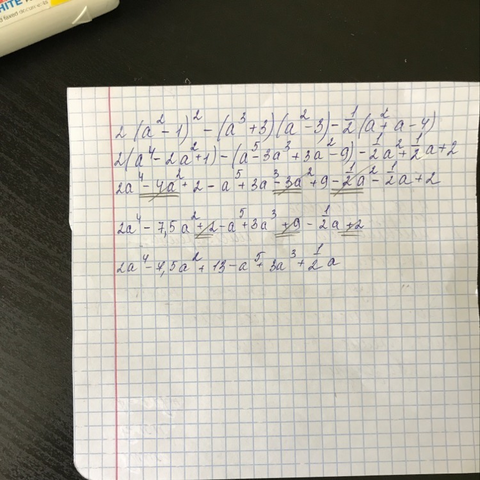 HITE
2(a²-1)² - (a³+3)(a²-3) - 1/2(a²+a-4)
2(a⁴-2a²+1) - (a⁵-3a³+3a²-9) - 1/2a²+1/2a+2
2a⁴-4a²+2-a⁵+3a³-3a²+9-1/2a²-1/2a+2
2a⁴-7,5a²+2-a⁵+3a³+9-1/2a+2
2a⁴-7,5a²+13-a⁵+3a³+1/2a